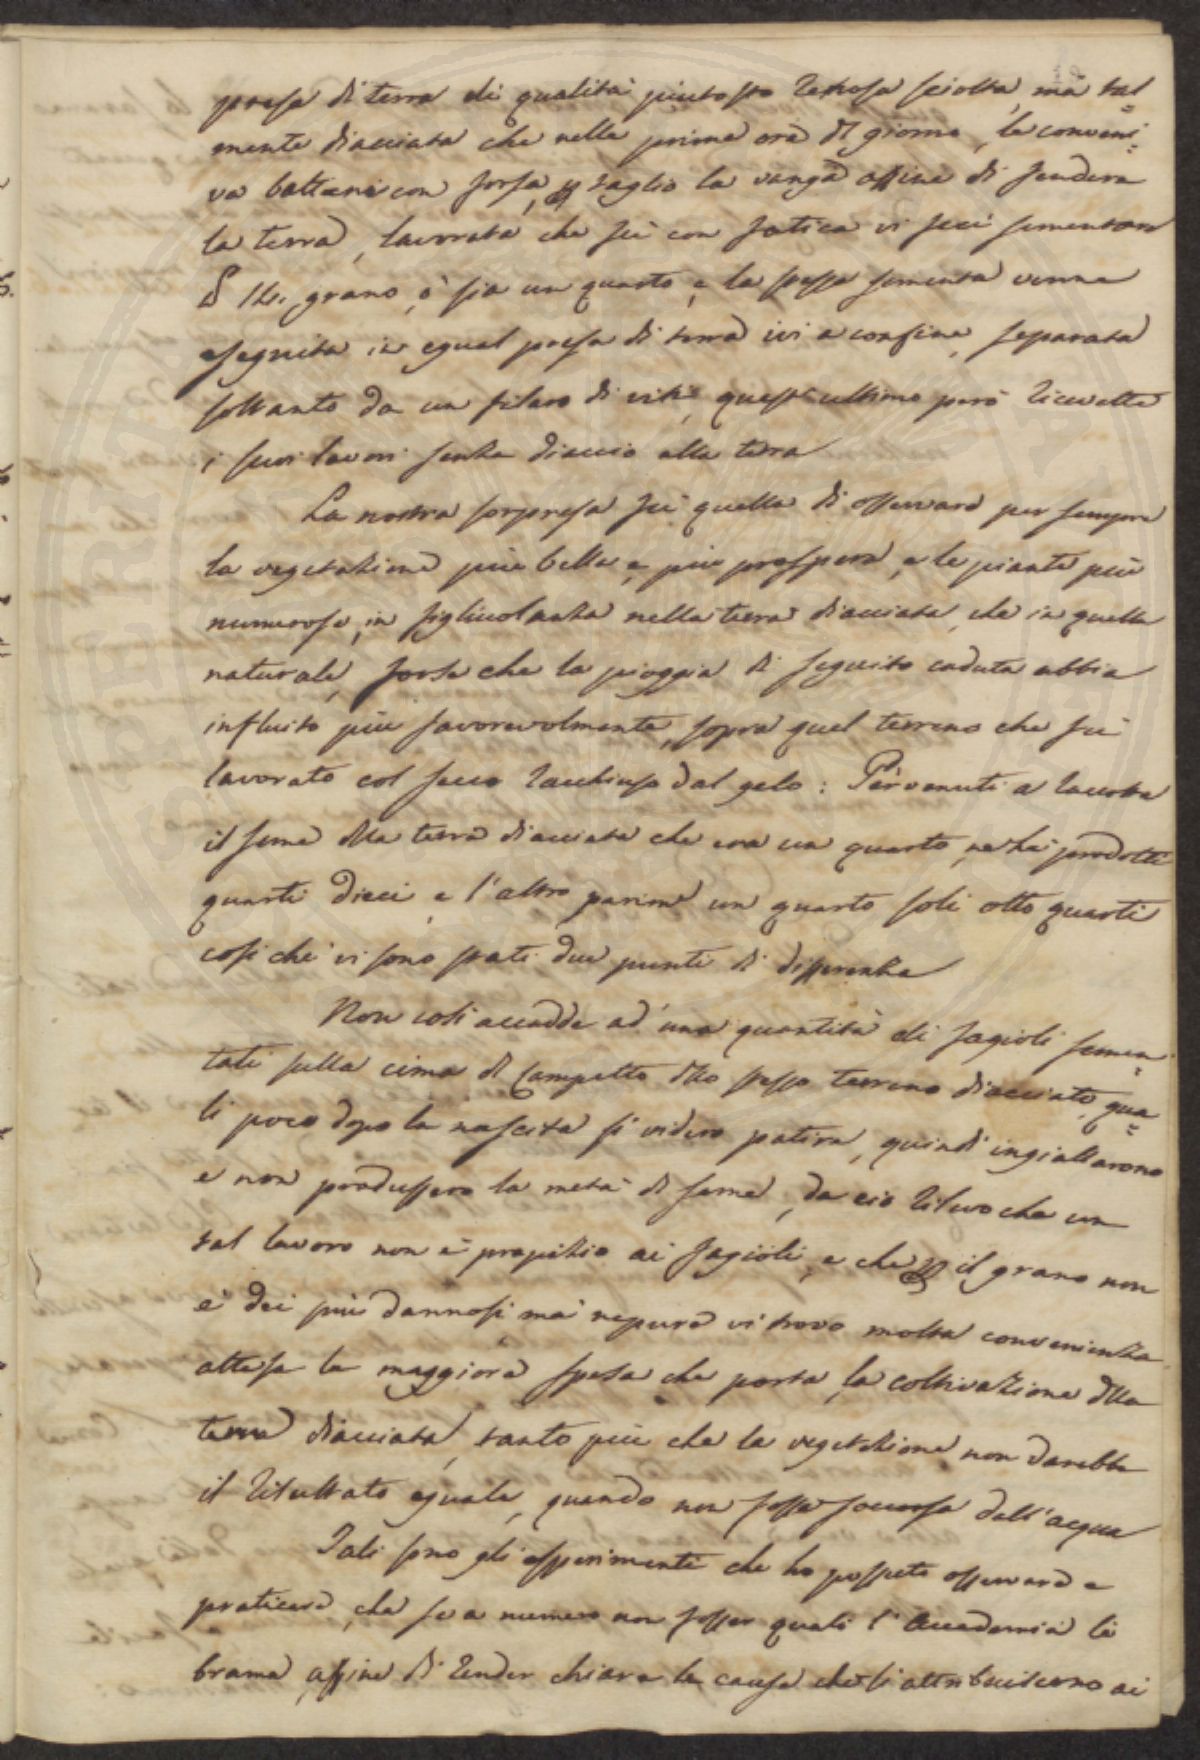 presa di terra di qualità piutosto Retrosa sciolta, mà tal=
mente diacciata che nelle prime ore dl giorno, le conveni=
va battere con forsa, taglio la vanga affine di fendere
la terra, lavorata che fù con fatica vi feci sementare
grano, ò sia un quarto, e la stessa sementa venne
eseguita in egual presa di terra ivi a confine, separata
soltanto da un filaro di viti, quest'ultimo però ricevette
i suoi lavori senza diaccio alla terra
La nostra sorpresa fù quella di osservare per sempre
la vegetazione più bella e più prospera, e le piante più
numerose, in figliuolanza nella terra diacciata, che in quella
naturale, forse che la pioggia di seguito caduta abbia
influito più favorevolmente, sopra quel terreno che fù
lavorato col secco racchiuso dal gelo: Pervenuti a raccolta
il seme dlla terra diacciata che era un quarto, ne hà prodotti
quarti dieci, e l'altro parime un quarto soli otto quarti
cosi chè vi sono stati due punti di differenza
Non cosi accadde ad una quantità di fagioli semen=
tati sulla cima dl Campetto dllo stesso terreno diacciato, qua=
li poco dopo la nascita si videro patire, quindi ingiallarono
e non produssero la metà di seme, da ciò rilevo che un
tal lavoro non è propizio ai fagioli, e che il grano non
è dei più dannosi, mà nepure vi trovo molta convenienza
attesa la maggiore spesa che porta la coltivazione dlla
terra diacciata, tanto più che la vegetazione non darebbe
il risultato eguale, quando non fosse soccorsa dall'acqua
Tali sono gli esperimenti che ho possuto osservare e
praticare, che se a numero non fosser quali l'Accademia li
brama, affine di render chiare le cause che si attribuiscono ai